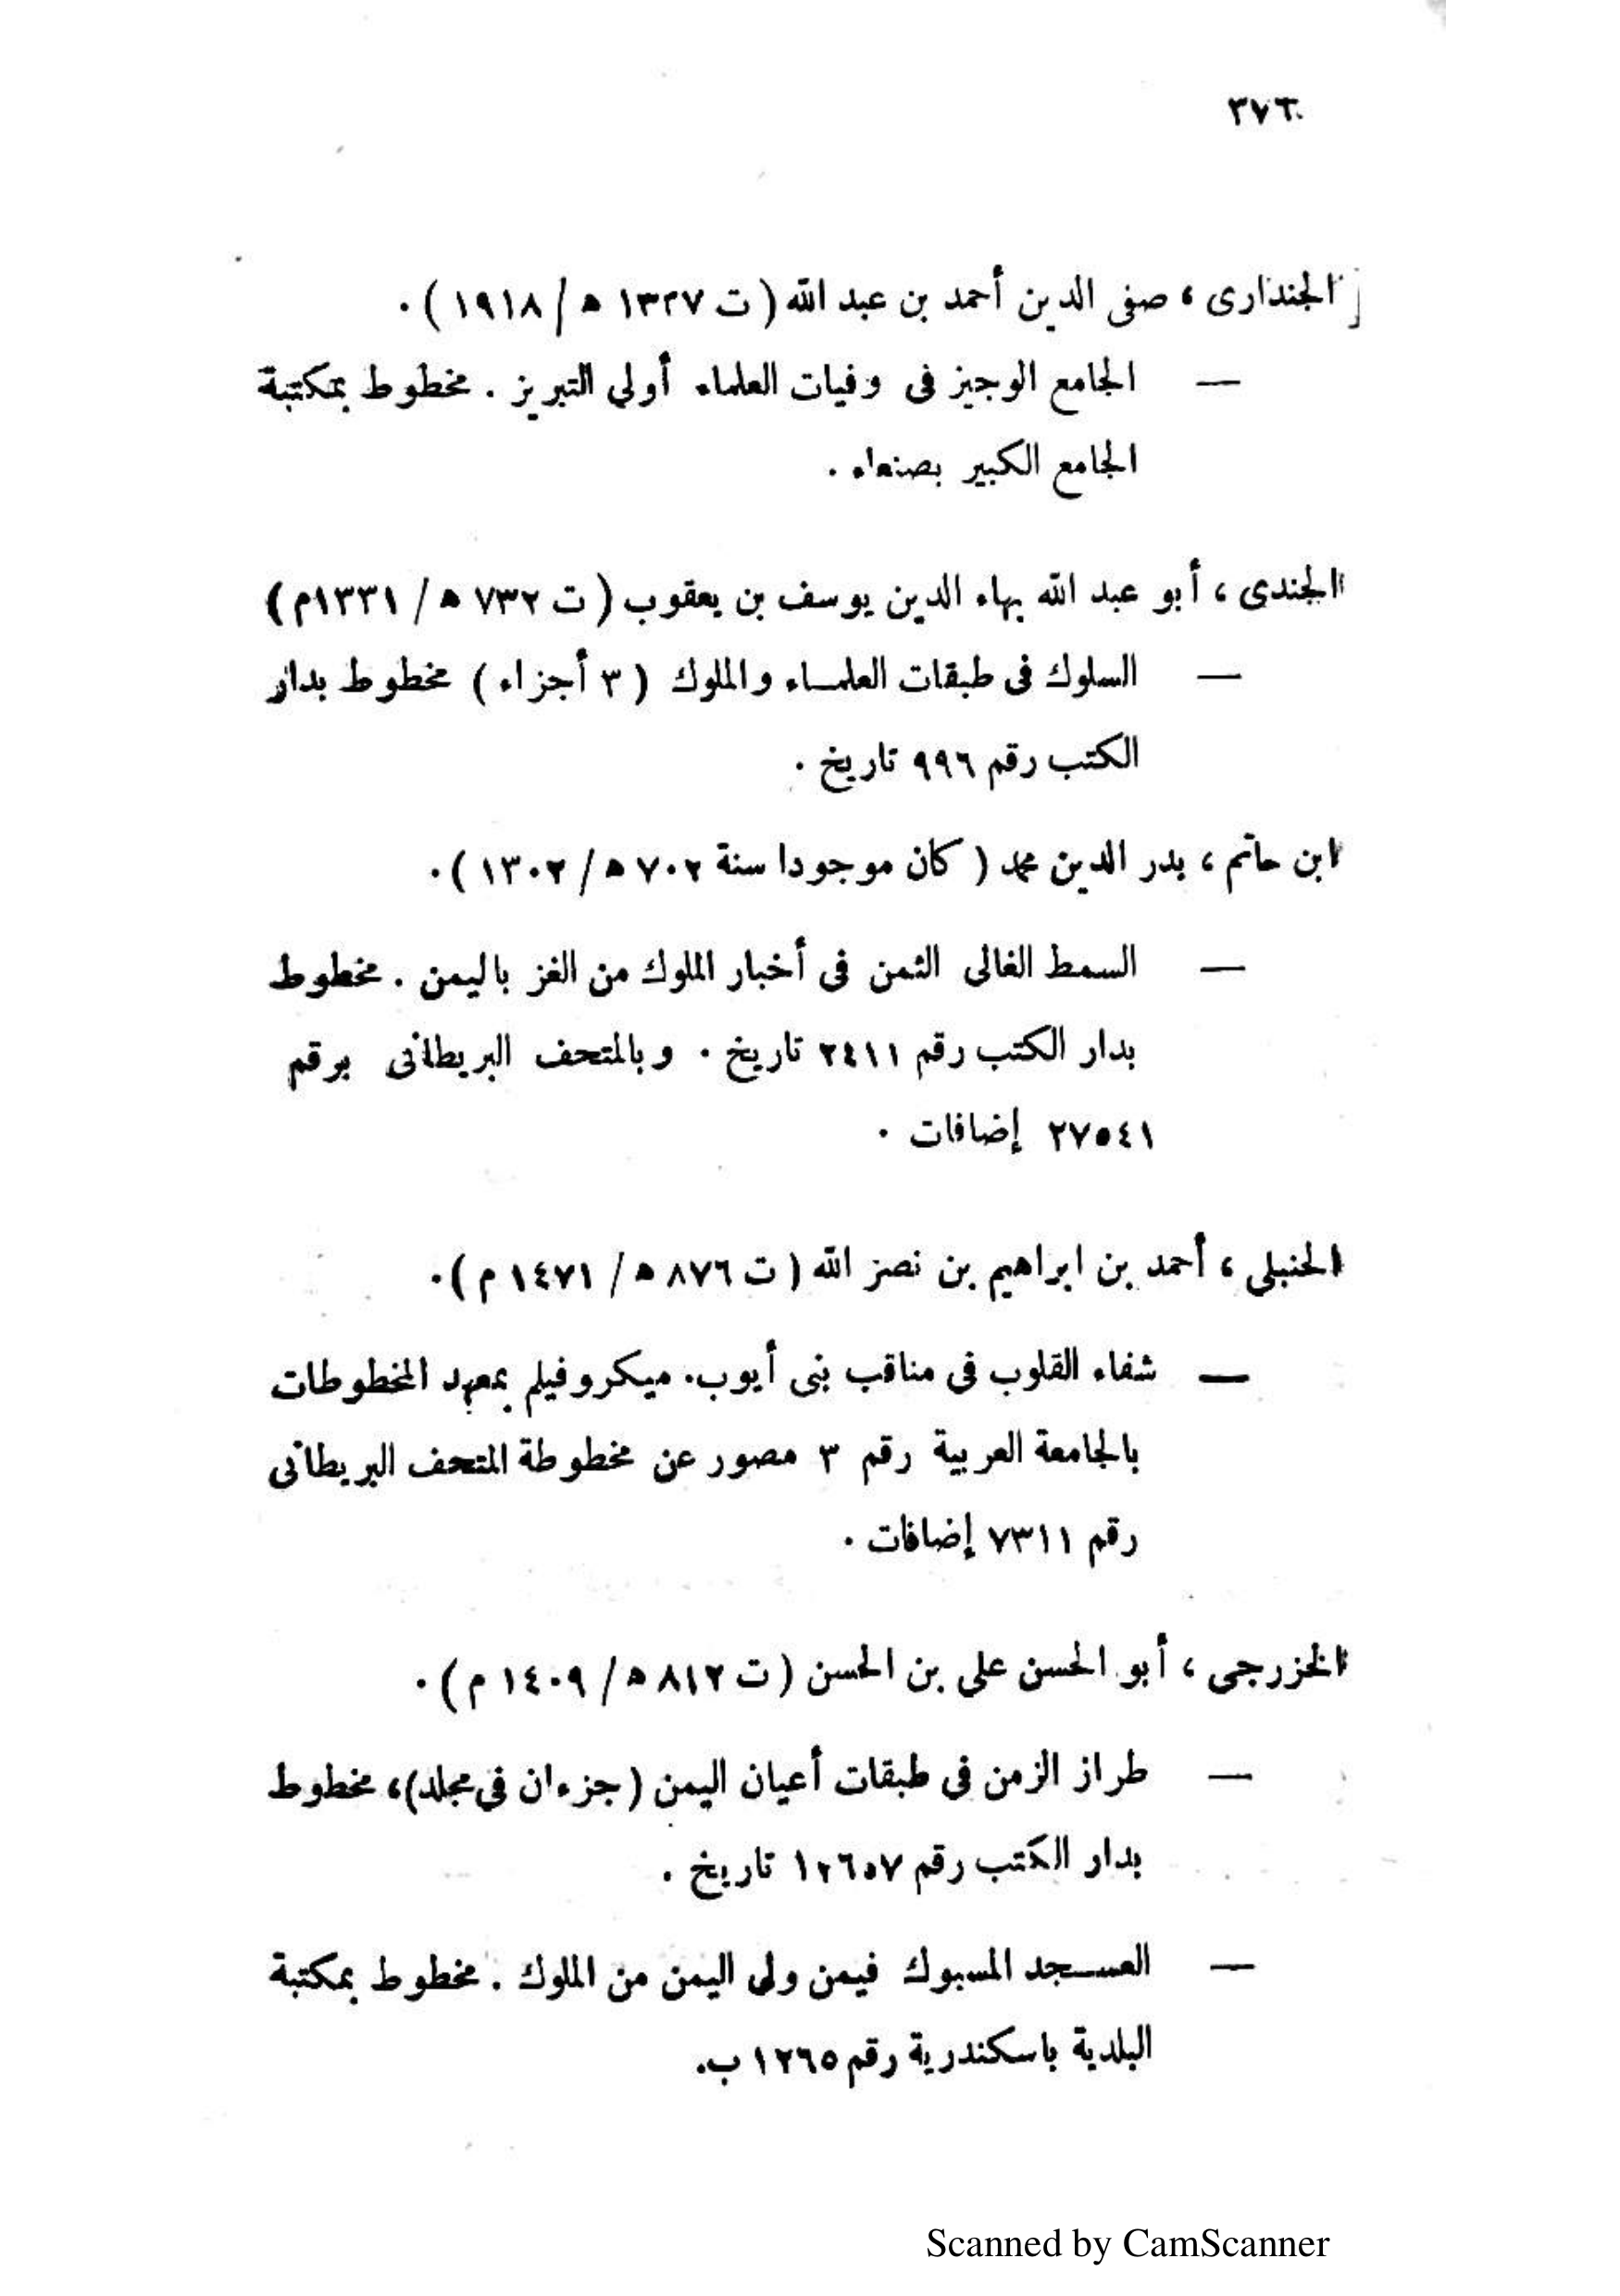 ٣٧٦
الجندارى ، صفى الدين أحمد بن عبد الله ( ت ١٣٣٧ ه / ١٩١٨ ) .
— الجامع الوجيز فى وفيات العلماء أولي التبريز . مخطوط بمكتبة
الجامع الكبير بصنعاء .
الجندى ، أبو عبد الله بهاء الدين يوسف بن يعقوب ( ت ٧٣٢ ه / ١٣٣١م )
— السلوك فى طبقات العلماء والملوك ( ٣ أجزاء ) مخطوط بدار
الكتب رقم ٩٩٦ تاريخ .
ابن حاتم ، بدر الدين محمد ( كان موجودا سنة ٧٠٢ ه / ١٣٠٢ ) .
— السمط الغالى الثمن فى أخبار الملوك من الغز باليمن . مخطوط
بدار الكتب رقم ٢٤١١ تاريخ . وبالمتحف البريطانى برقم
٢٧٥٤١ إضافات .
الحنبلى ، أحمد بن ابراهيم بن نصر الله ( ت ٨٧٦ ه / ١٤٧١ م ) .
— شفاء القلوب فى مناقب بنى أيوب . ميكروفيلم بمعهد المخطوطات
بالجامعة العربية رقم ٣ مصور عن مخطوطة المتحف البريطانى
رقم ٧٣١١ إضافات .
الخزرجى ، أبو الحسن على بن الحسن ( ت ٨١٢ ه / ١٤٠٩ م ) .
— طراز الزمن فى طبقات أعيان اليمن ( جزءان فى مجلد ) ، مخطوط
بدار الكتب رقم ١٢٦٥٧ تاريخ .
— العسجد المسبوك فيمن ولى اليمن من الملوك . مخطوط بمكتبة
البلدية باسكندرية رقم ١٢٦٥ ب .
Scanned by CamScanner